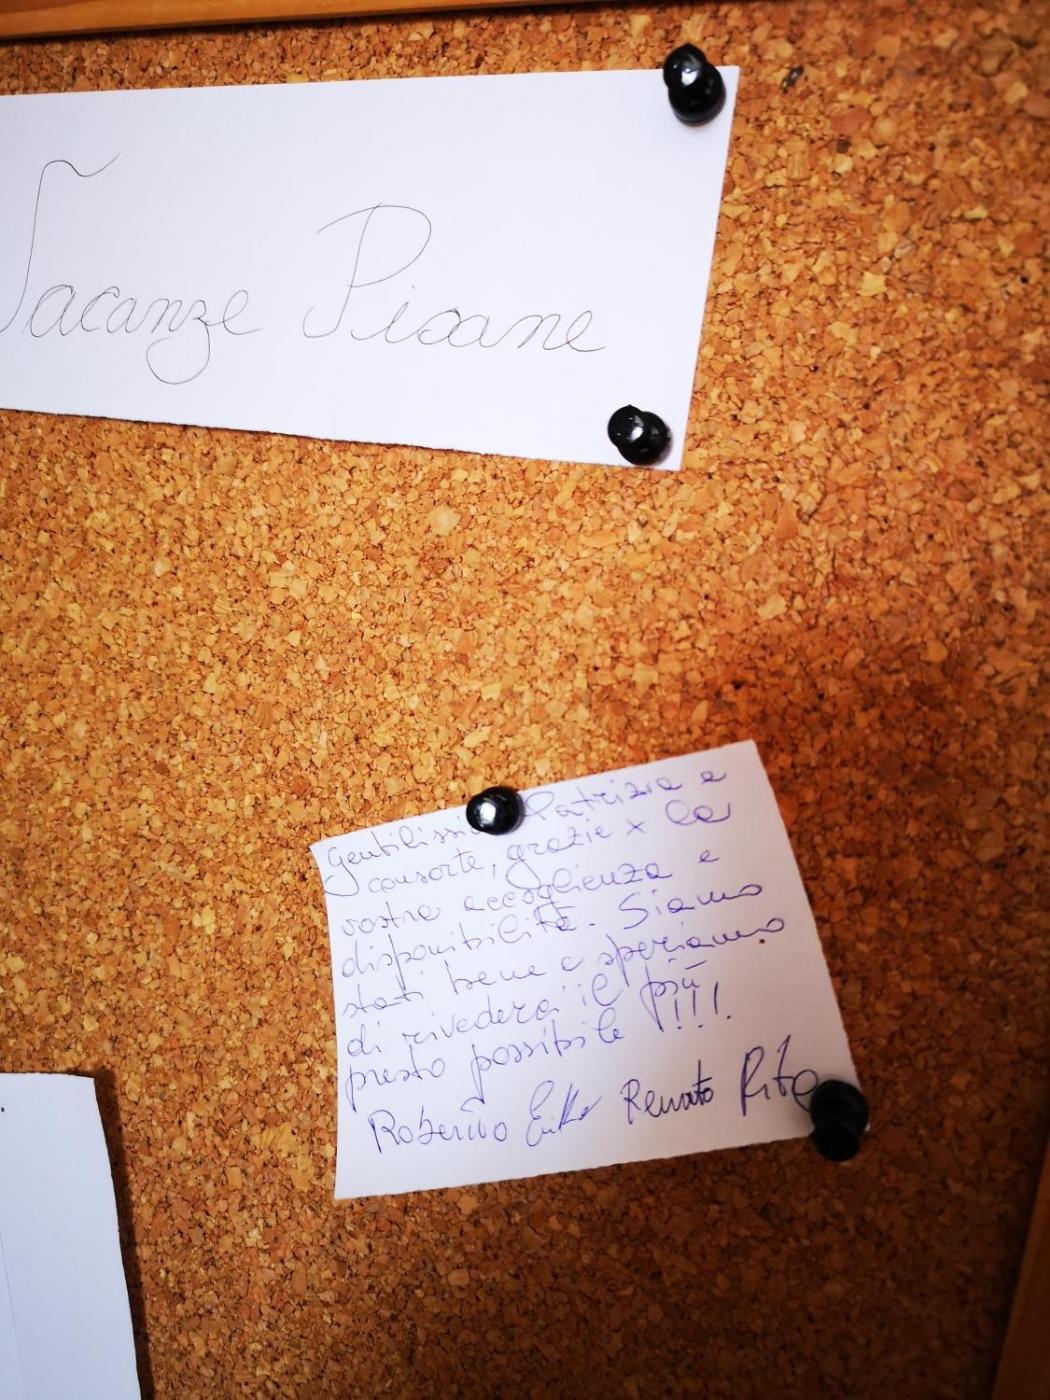 Vacanze Pisane
Gentilissi Patrizia e
consorte, grazie x la
vostra accoglienza e
disponibilità. Siamo
stati bene e speriamo
di rivederci il più
presto possibile !!!
Roberto Erika Renato Rita